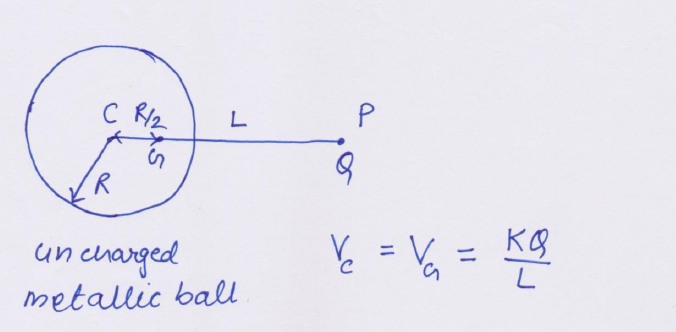 C R/2 L P
G Q
R
uncharged
metallic ball
V_C = V_G = KQ/L